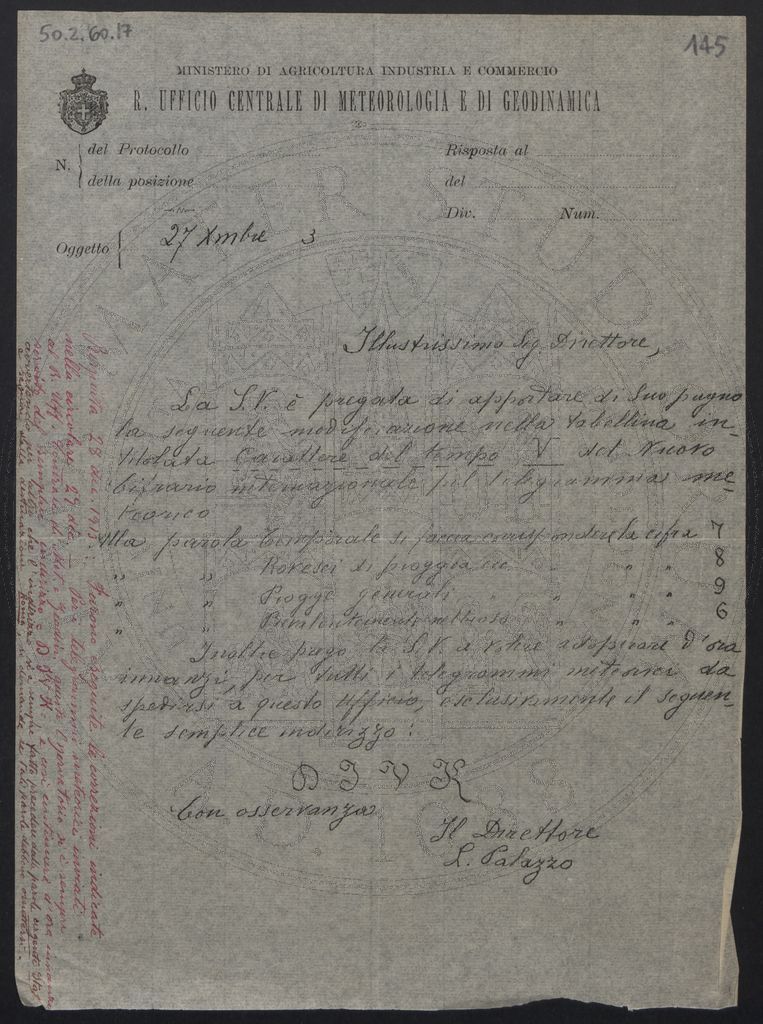 50.2.60.17
145
MINISTERO DI AGRICOLTURA INDUSTRIA E COMMERCIO
R. UFFICIO CENTRALE DI METEOROLOGIA E DI GEODINAMICA
N. del Protocollo
della posizione
Risposta al
del
Div. Num.
Oggetto
27 Xmbre 3
Illustrissimo Sig Direttore,
La S.V. è pregata di apportare di Suo pugno
la seguente modificazione nella tabellina in-
titolata Carattere del tempo V del Nuovo
Cifrario internazionale pel telegramma me-
teorico
Alla parola Temporale si faccia corrispondere la cifra 7
" " Rovesci di pioggia ecc " " 8
" " Piogge generali " " " 9
" " Prevalentemente nebbioso " " 6
Inoltre prego la S.V. a voler adoperare d'ora
innanzi per tutti i telegrammi meteorici da
spedirsi a questo Ufficio, esclusivamente il seguen-
te semplice indirizzo:
D I V K
Con osservanza
Il Direttore
L. Palazzo
Eseguita 28 dic 1913. Furono eseguite le correzioni indicate
nella circolare 27 dic — Per i telegrammi meteorici inviati
al R. Uff. Centrale di Met. e Geodin. questo Osservatorio si è sempre
servito del semplice indirizzo = D I V K = e così continuerà d'ora innanzi